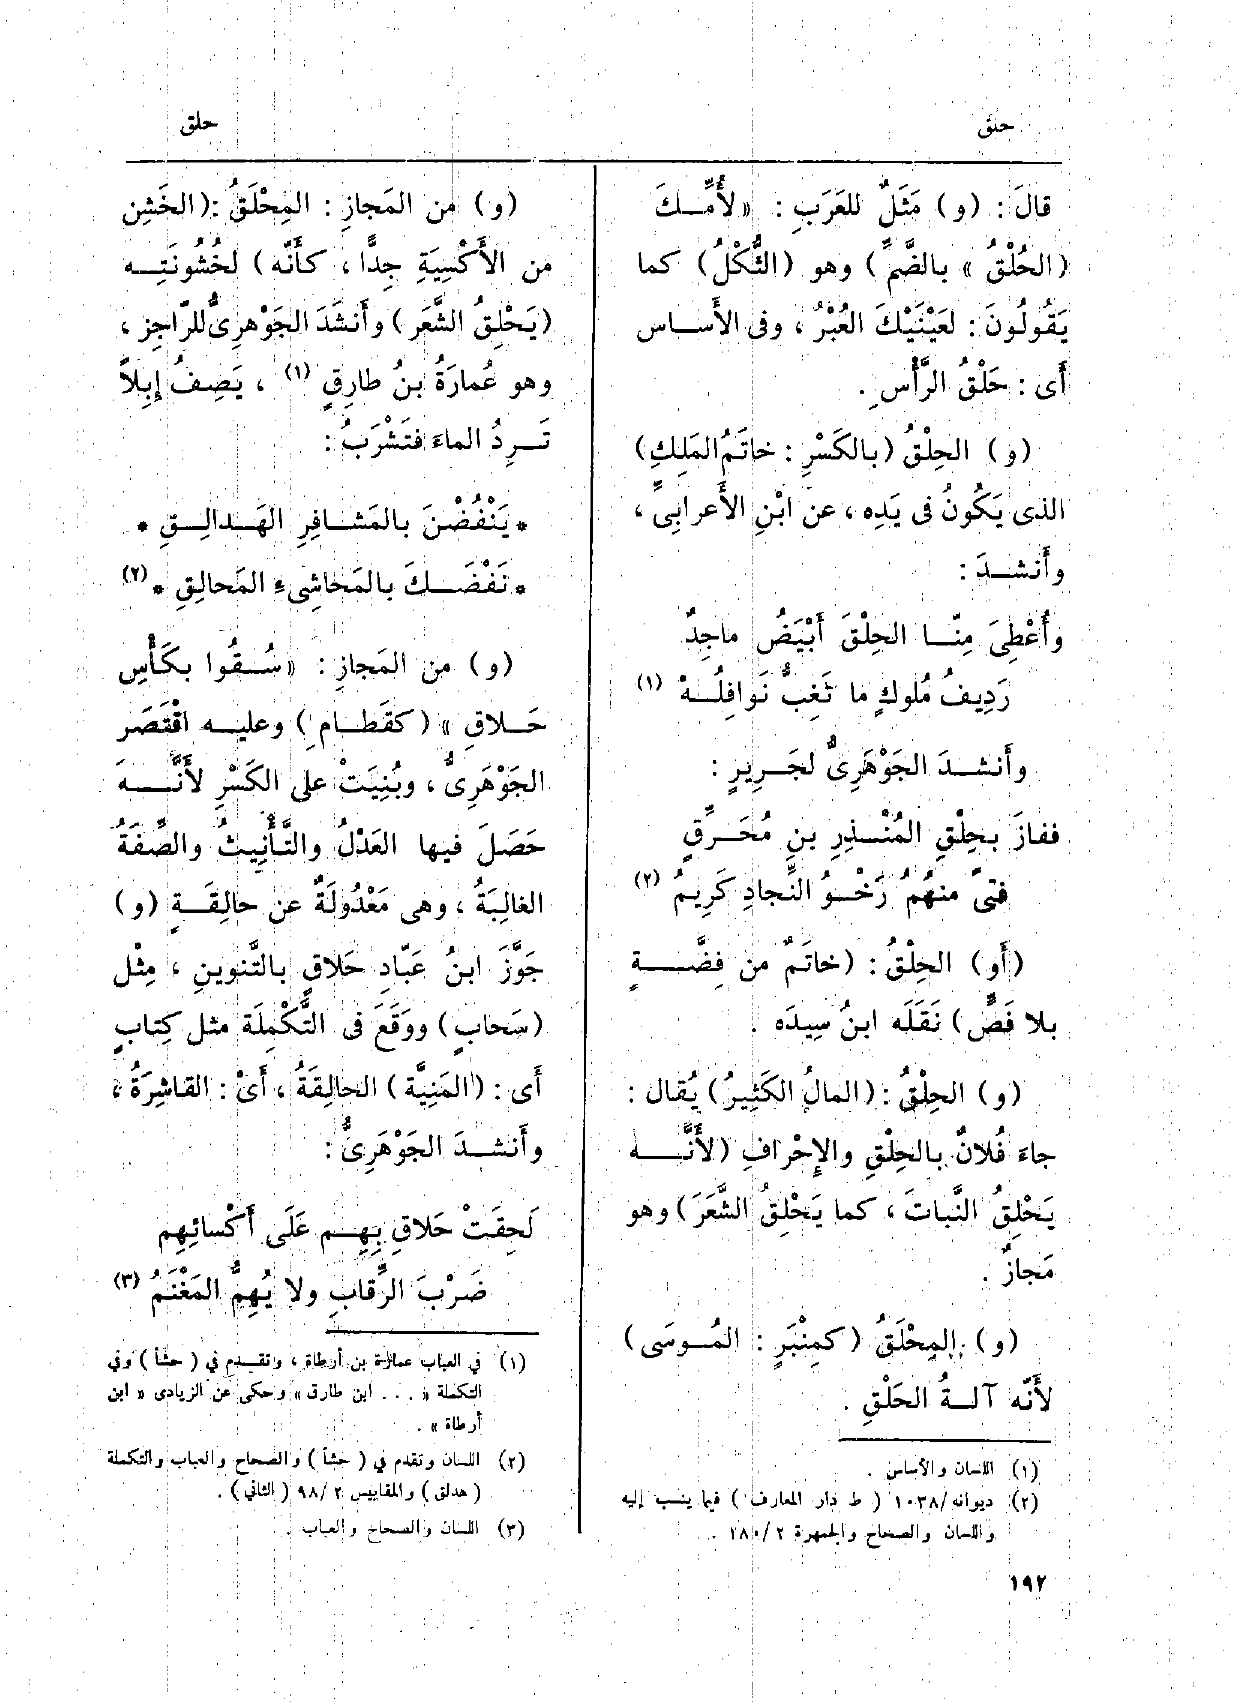 حلق
حلق
قالَ : (و) مَثَلٌ للعَرَبِ : «لأُمِّـكَ
(الحُلْقُ» بالضَّمِّ) وهو (الثُّكْلُ) كما
يَقُولُونَ : لعَيْنَيْكَ العُبْرُ ، وفى الأَساس
أَى : حَلْقُ الرَّأْسِ .
(و) الحِلْقُ (بالكَسْرِ : خاتَمُ المَلِكِ)
الذى يَكُونُ فى يَدِه ، عن ابْنِ الأَعرابِىِّ ،
وأَنشـدَ :
وأُعْطِىَ مِنّـا الحِلْقَ أَبْيَضُ ماجِدٌ
رَدِيفُ مُلوكٍ ما تَغِبُّ نَوافِلُـهْ (١)
وأَنشـدَ الجَوْهَرِىُّ لجَرِيرٍ :
ففازَ بحِلْقِ المُنْـذِرِ بنِ مُحَـرِّقٍ
فتىً منهُمُ رَخْـوُ النِّجادِ كَرِيمُ (٢)
(أَو) الحِلْقُ : (خاتَمٌ من فِضَّـةٍ
بلا فَصٍّ) نَقَلَه ابنُ سِيدَه .
(و) الحِلْقُ : (المالُ الكَثِيرُ) يُقال :
جاءَ فُلانٌ بالحِلْقِ والإِحْرافِ (لأَنَّـه
يَحْلِقُ النَّباتَ ، كما يَحْلِقُ الشَّعَرَ) وهو
مَجازٌ .
(و) المِحْلَقُ (كمِنْبَرٍ : المُـوسَى)
لأَنّه آلـةُ الحَلْقِ .
(١) اللسان والأساس .
(٢) ديوانه/١٠٣٨ ( ط دار المعارف ) فيما ينسب إليه
واللسان والصحاح والجمهرة ١٨٠/٢ .
(و) من المَجازِ : المِحْلَقُ : (الخَشِن
من الأَكْسِيَةِ جِدًّا ، كأَنّه) لخُشُونَتِـه
(يَحْلِقُ الشَّعَر) وأَنشَدَ الجَوْهرِىُّ للرّاجِز ،
وهو عُمارَةُ بنُ طارِقٍ (١) ، يَصِفُ إِبِلاً
تَـرِدُ الماءَ فتَشْرَبُ :
* يَنْفُضْنَ بالمَشـافِرِ الهَـدالِـقِ *
* نَفْضَـكَ بالمَحاشِىءِ المَحالِقِ * (٢)
(و) من المَجازِ : «سُـقُوا بكَأْسِ
حَـلاقِ» (كقَطـامِ) وعليـه اقْتَصَر
الجَوْهَرِىُّ ، وبُنِيَتْ على الكَسْرِ لأَنَّـهَ
حَصَلَ فيها العَدْلُ والتَّأْنِيثُ والصِّفَةُ
الغالِبَةُ ، وهى مَعْدُولَةٌ عن حالِقَـةٍ (و)
جَوَّزَ ابنُ عَبّادٍ حَلاقٍ بالتَّنوينِ ، مِثْل
(سَحابٍ) ووَقَعَ فى التَّكْمِلَة مثل كِتابٍ
أَى : (المَنِيَّة) الحالِقَةُ ، أَىْ : القاشِرَةُ ،
وأَنشـدَ الجَوْهَرِىُّ :
لَحِقَتْ حَلاقِ بِهِـم عَلَى أَكْسائِهِم
ضَرْبَ الرِّقابِ ولا يُهِمُّ المَغْنَمُ (٣)
(١) في العباب عمارة بن أرطاة ، وتقـدم في ( حشأ ) وفي
التكملة « . . . ابن طارق » وحكى عن الزيادى « ابن
أرطاة » .
(٢) اللسان وتقدم في ( حشأ ) والصحاح والعباب والتكملة
( هدلق ) والمقاييس ٩٨/٢ ( الثاني ) .
(٣) اللسان والصحاح والعباب .
١٩٢